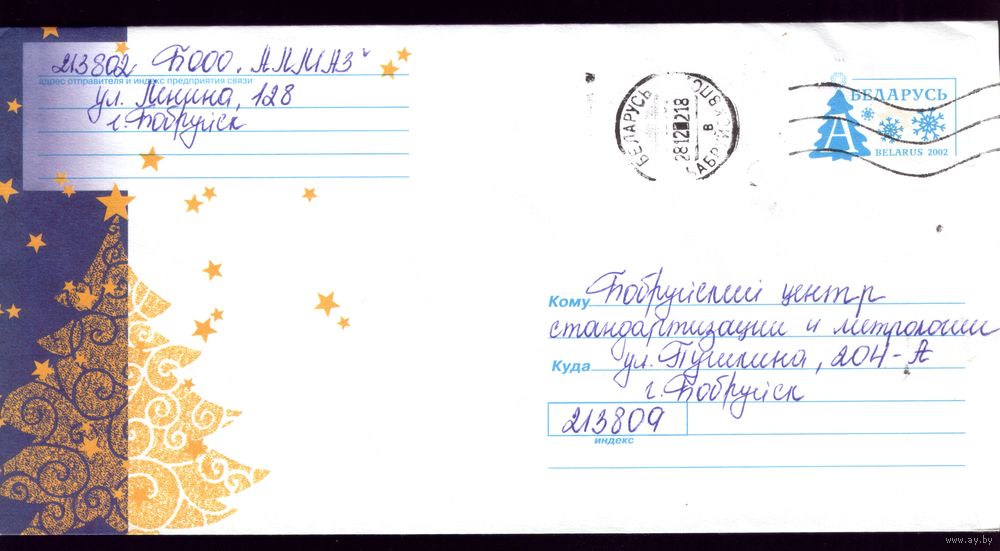 213802 БООО „АЛМАЗ"
адрес отправителя и индекс предприятия связи
ул. Ленина, 128
г. Бобруйск
БЕЛАРУСЬ
28 12 2 18
В
БЕЛАРУСЬ
А
BELARUS 2002
Кому Бобруйский центр
стандартизации и метрологии
Куда ул. Пушкина, 204-А
г. Бобруйск
213809
индекс
www.ay.by